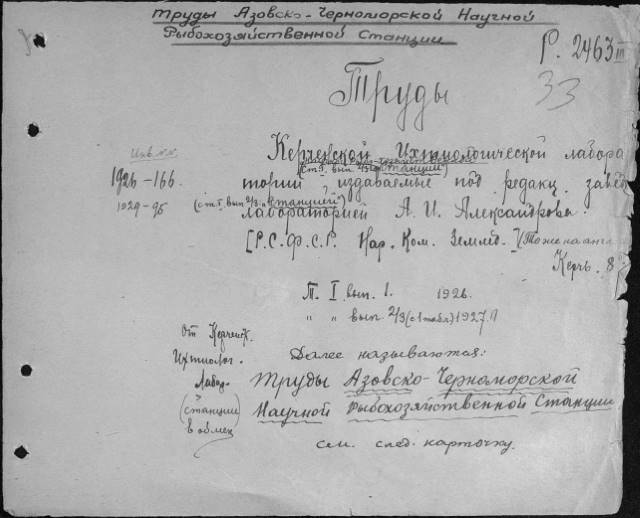 Труды Азовско-Черноморской Научной
Рыбохозяйственной Станции
P. 2463 III
33
Труды
Инв. №№
Керченской Ихтиологической лабора
(с т. I, вып. 2/3 Станции)
1926-166.
тории, издаваемые под редакц. завед
1929-95
(с т. I, вып. 2/3 "Станцией")
лабораторией А. И. Александрова.
[Р.С.Ф.С.Р. Нар. Ком. Землед.] (Тоже на англ
Керчь. 8°
Т. I. вып. 1. 1926.
" " вып. 2/3 (с 1 табл.) 1927.
От Керченск.
Ихтиолог.
Далее называются:
Лабор.
Труды Азовско-Черноморской
(Станции)
Научной Рыбохозяйственной Станции
в обмен
см. след. карточку.